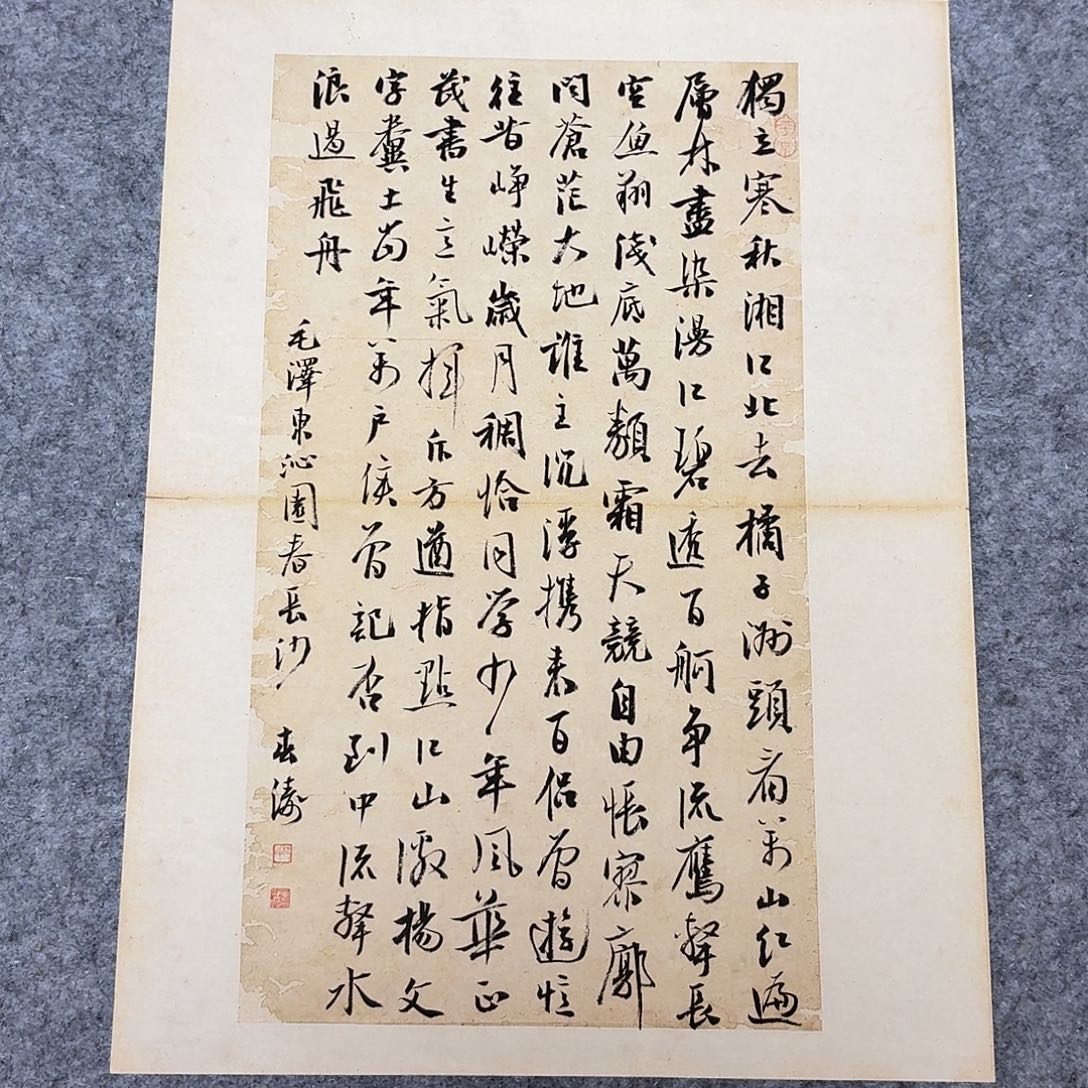 獨立寒秋湘江北去橘子洲頭看萬山紅遍
層林盡染漫江碧透百舸争流鷹擊長
空魚翔淺底萬類霜天競自由悵寥廓
問蒼茫大地誰主沉浮携來百侶曾遊憶
往昔崢嶸歲月稠恰同学少年風華正
茂書生意氣揮斥方遒指點江山激揚文
字糞土當年萬户侯曾記否到中流擊水
浪遏飛舟
毛澤東沁園春長沙